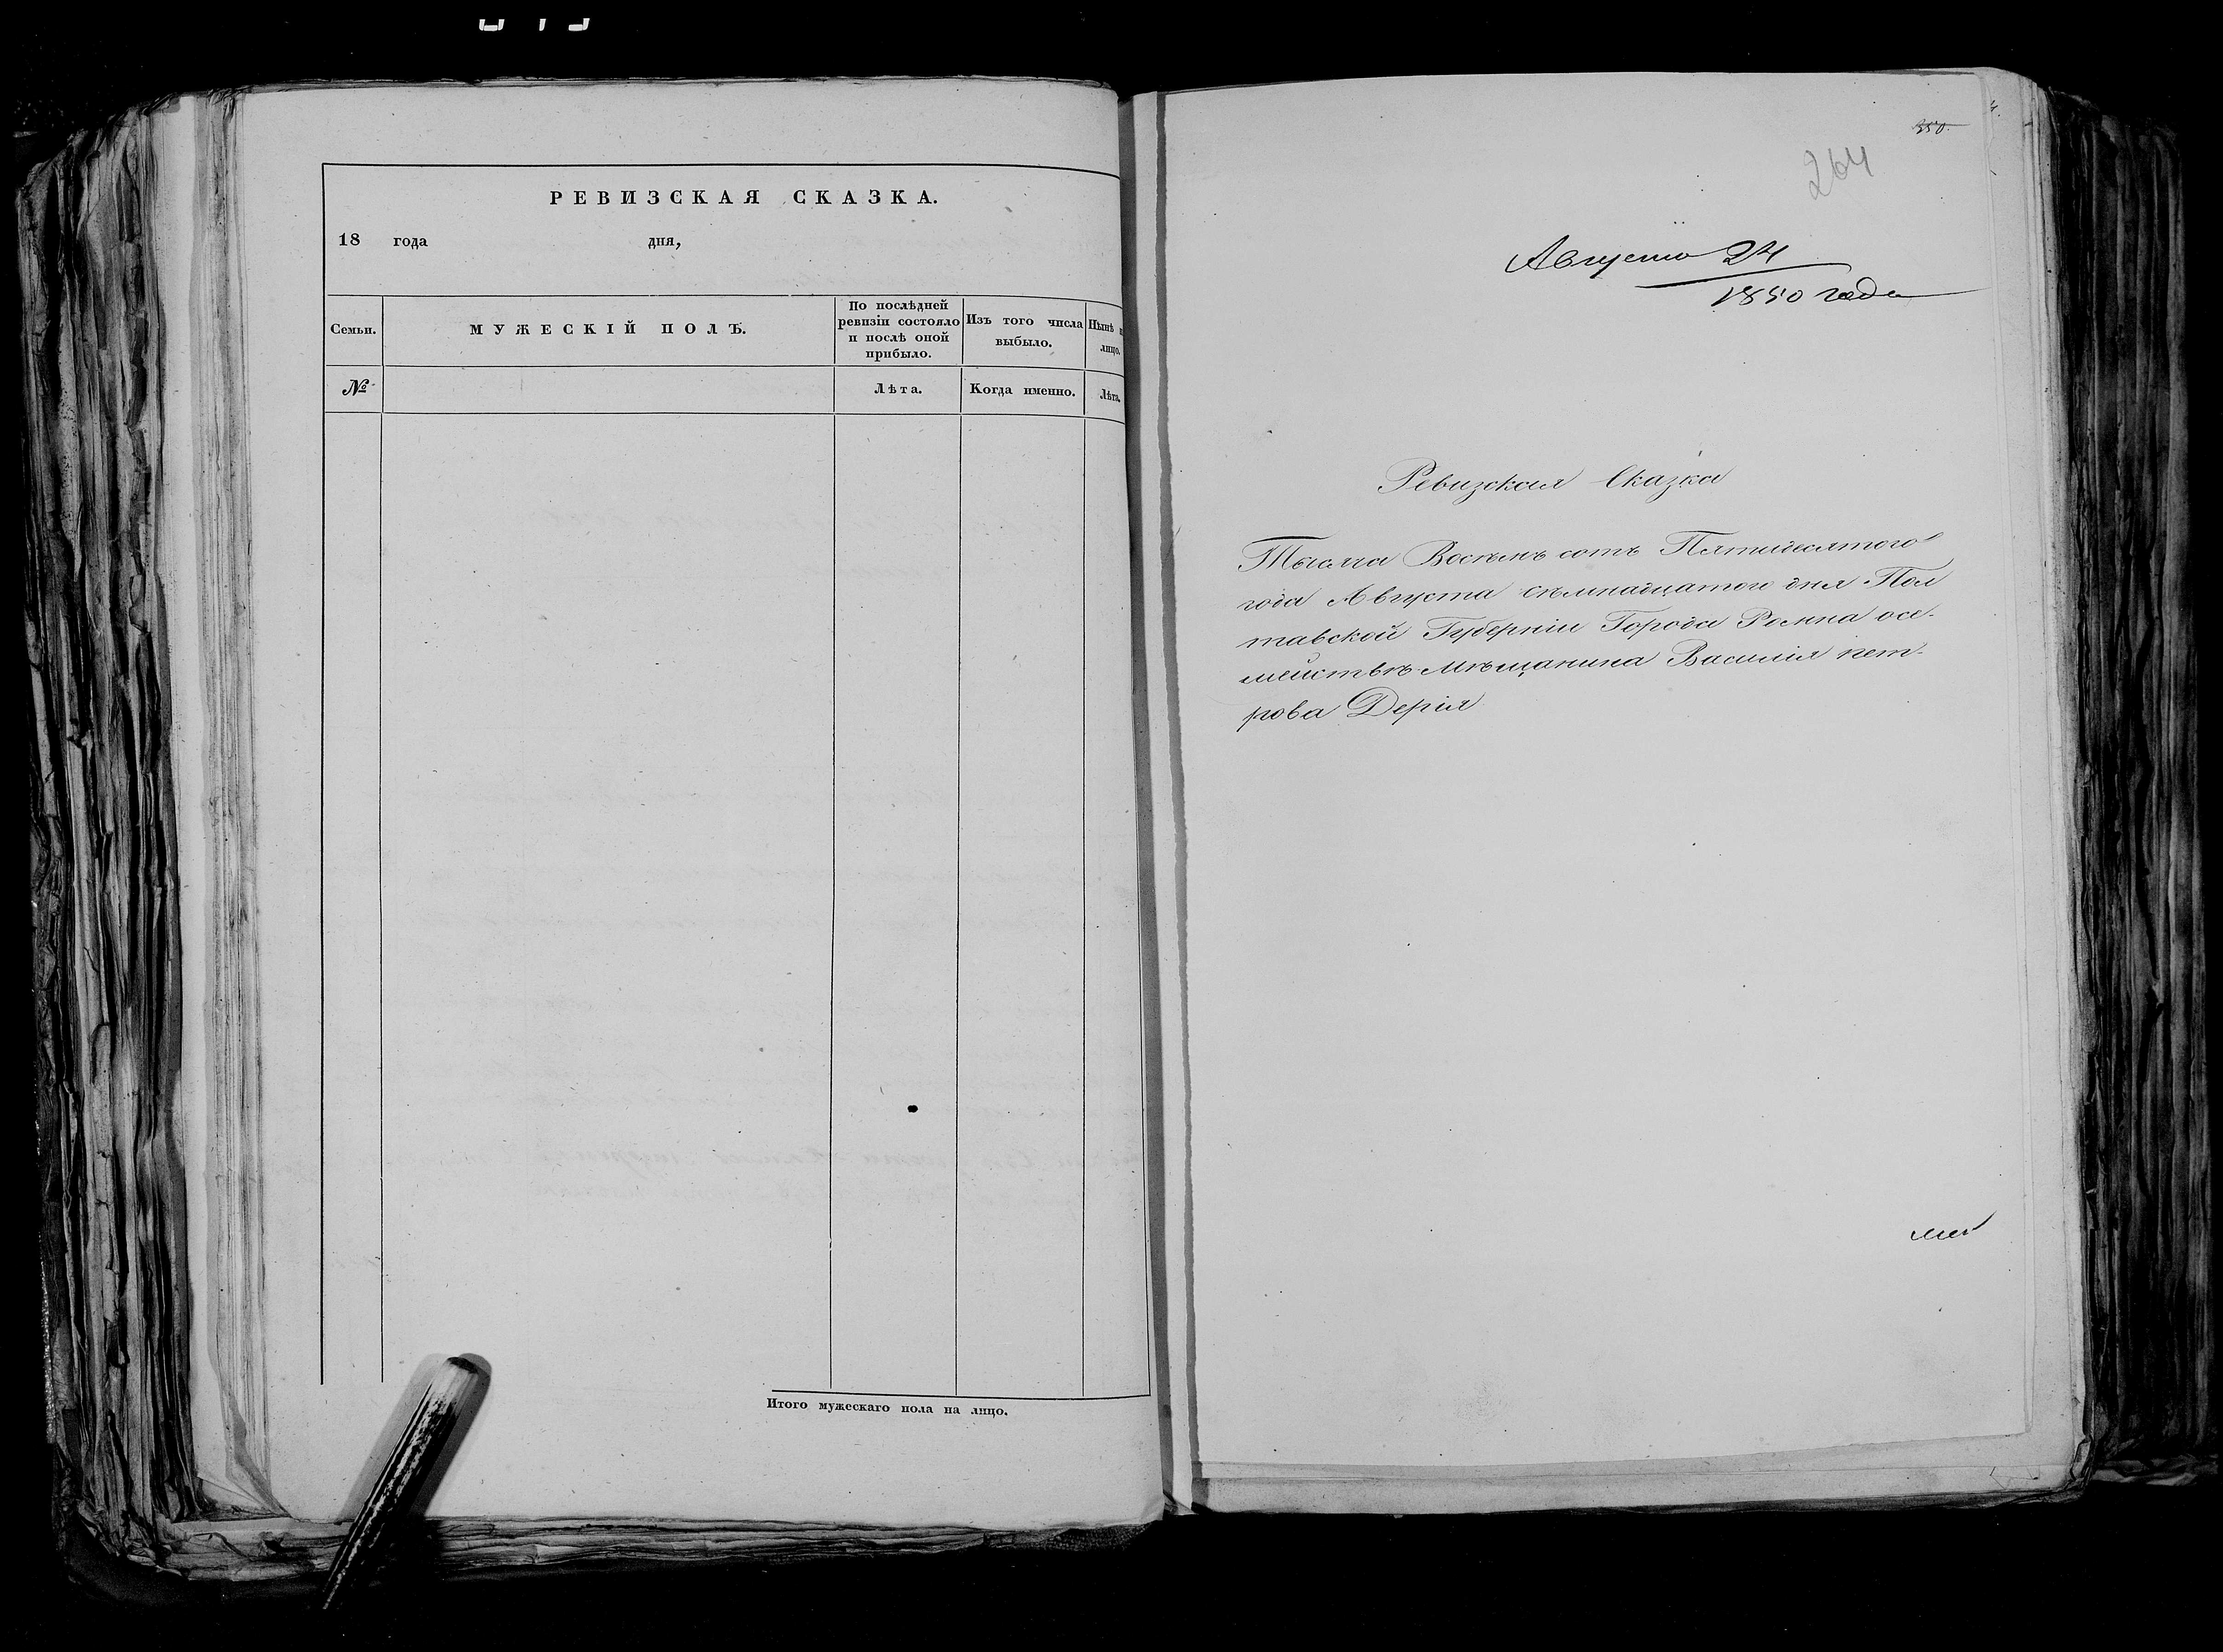 РЕВИЗСКАЯ СКАЗКА.
18 года дня,
Семьи.
МУЖЕСКІЙ ПОЛЪ.
По послѣдней ревизіи состояло и послѣ оной прибыло.
Изъ того числа выбыло.
Нынѣ
лицо.
№
Лѣта.
Когда именно.
Лѣта.
Итого мужескаго пола на лицо.
350.
264
Августа 24
1850 года
Ревизская Сказка
Тысяча Восемь сотъ Пятидесятого
года Августа семнадцатого дня Пол
тавской Губерніи Города Ромна осе-
мействѣ мѣщанина Василія пет-
рова Дерія